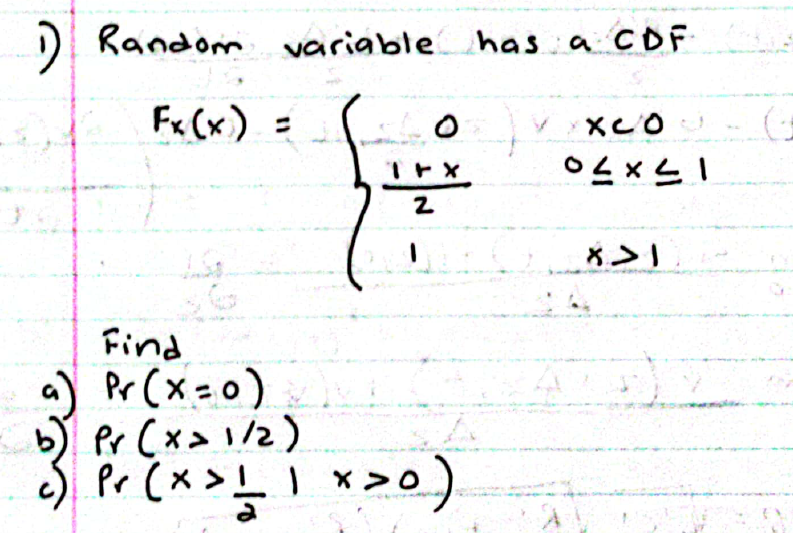 1) Random variable has a CDF
Fx(x) = { 0 x<0
1+x/2 0≤x≤1
1 x>1
Find
a) Pr(x=0)
b) Pr(x>1/2)
c) Pr(x>1/2 | x>0)